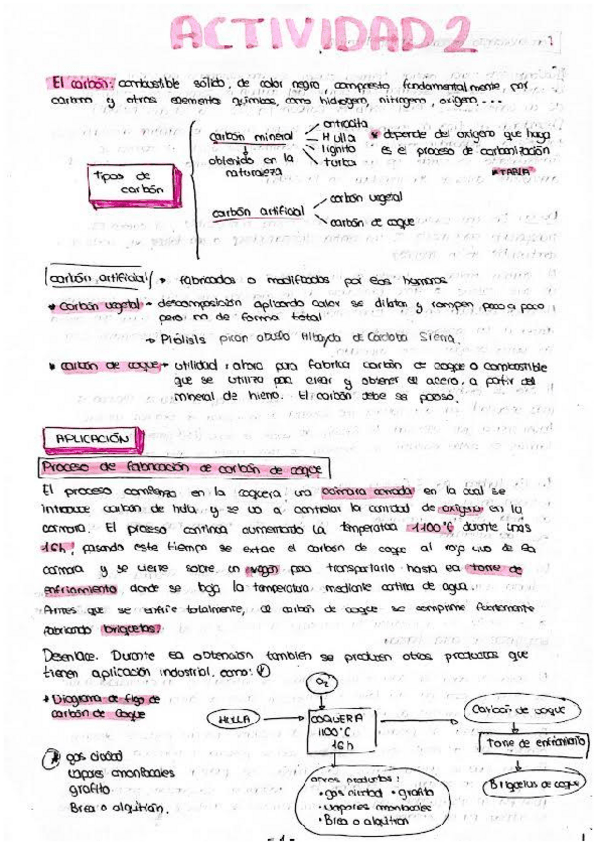 ACTIVIDAD 2
1
El carbón: combustible sólido, de color negro compuesto fundamentalmente, por
carbono y otros elementos químicos, como hidrogen, nitrogeno, oxigeno, ...
tipos de
carbón
carbón mineral
obtenido en la
naturaleza
antracita
Hulla
lignito
turba
depende del oxigeno que haya
es el proceso de carbonización
TABLA
carbón artificial
carbón vegetal
carbón de coque
carbón artificial → fabricados o modificados por los humanos
carbón vegetal → descomposición aplicando calor se dilatan y rompen poco a poco
pero no de forma total
→ Piólisis Córdoba Sierra.
carbón de coque → utilidad: ahora para fabricar carbón de coque o combustible
que se utiliza para crear y obtener el acero, a partir del
mineral de hierro. El carbón debe ser poroso.
APLICACIÓN
Proceso de fabricación de carbón de coque
El proceso comienza en la coquera, una cámara cerrada en la cual se
introduce carbon de hulla y se va a controlar la cantidad de oxígeno en la
cámara. El proceso continua aumentando la temperatura 1100°C durante unas
16h, pasando este tiempo se extrae el carbón de coque al rojo vivo de la
cámara y se vierte sobre un vagón para transportarlo hasta la torre de
enfriamiento donde se baja la temperatura mediante cortina de agua.
Antes que se enfrie totalmente, el carbón de coque se comprime fuertemente
fabricando briquetas.
Desenlace. Durante la obtención también se producen otros productos que
tienen aplicación industrial. como:
Diagrama de flujo de
carbón de Coque
O₂
HULLA
COQUERA
1100°C
16h
Carbón de coque
Torre de enfriamiento
Briquetas de coque
gas ciudad
vapores amoniacales
grafito
Brea o alquitrán.
otros productos:
· gas ciudad · grafito
· vapores amoniacales
· Brea o alquitran
- 1 -